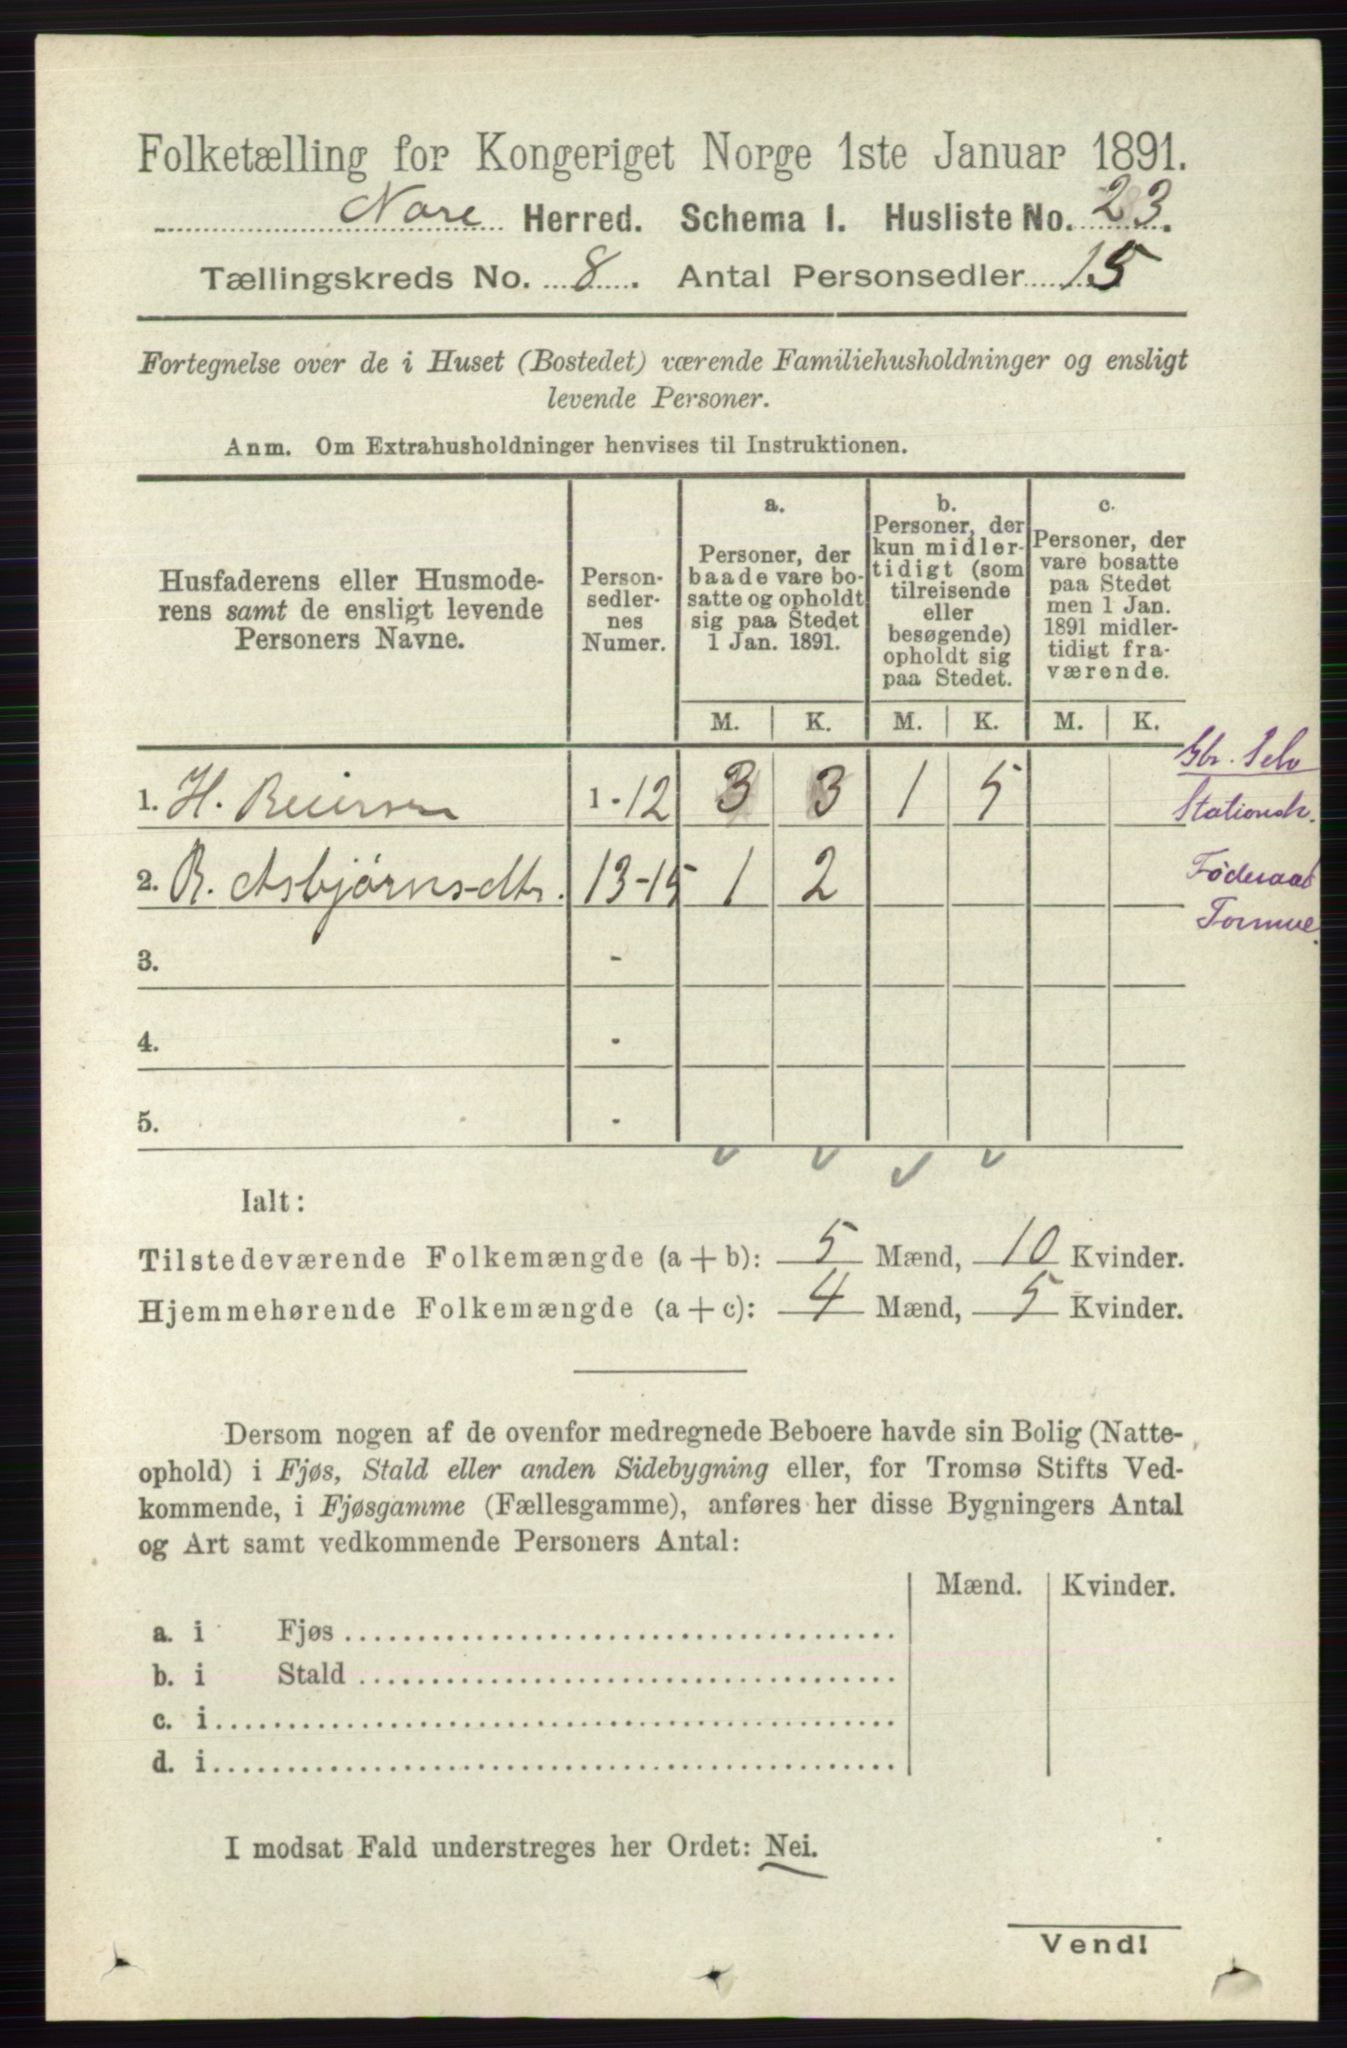 Folketælling for Kongeriget Norge 1ste Januar 1891.
Nore Herred. Schema I. Husliste No. 23.
Tællingskreds No. 8. Antal Personsedler 15
Fortegnelse over de i Huset (Bostedet) værende Familiehusholdninger og ensligt
levende Personer.
Anm. Om Extrahusholdninger henvises til Instruktionen.
Husfaderens eller Husmode-
rens samt de ensligt levende
Personers Navne.
Person-
sedler-
nes
Numer.
a.
Personer, der
baade vare bo-
satte og opholdt
sig paa Stedet
1 Jan. 1891.
b.
Personer, der
kun midler-
tidigt (som
tilreisende
eller
besøgende)
opholdt sig
paa Stedet.
c.
Personer, der
vare bosatte
paa Stedet
men 1 Jan.
1891 midler-
tidigt fra-
værende.
M. K. M. K. M. K.
1. H. 1-12 3 3 1 5
Gbr. Selv
Stationsh.
2. R. Asbjørnsdtr. 13-15 1 2
Føderaad
Formue.
3. -
4. -
5. -
Ialt:
Tilstedeværende Folkemængde (a + b): 5 Mænd, 10 Kvinder.
Hjemmehørende Folkemængde (a + c): 4 Mænd, 5 Kvinder.
Dersom nogen af de ovenfor medregnede Beboere havde sin Bolig (Natte-
ophold) i Fjøs, Stald eller anden Sidebygning eller, for Tromsø Stifts Ved-
kommende, i Fjøsgamme (Fællesgamme), anføres her disse Bygningers Antal
og Art samt vedkommende Personers Antal:
Mænd. Kvinder.
a. i Fjøs
b. i Stald
c. i
d. i
I modsat Fald understreges her Ordet: Nei.
Vend!